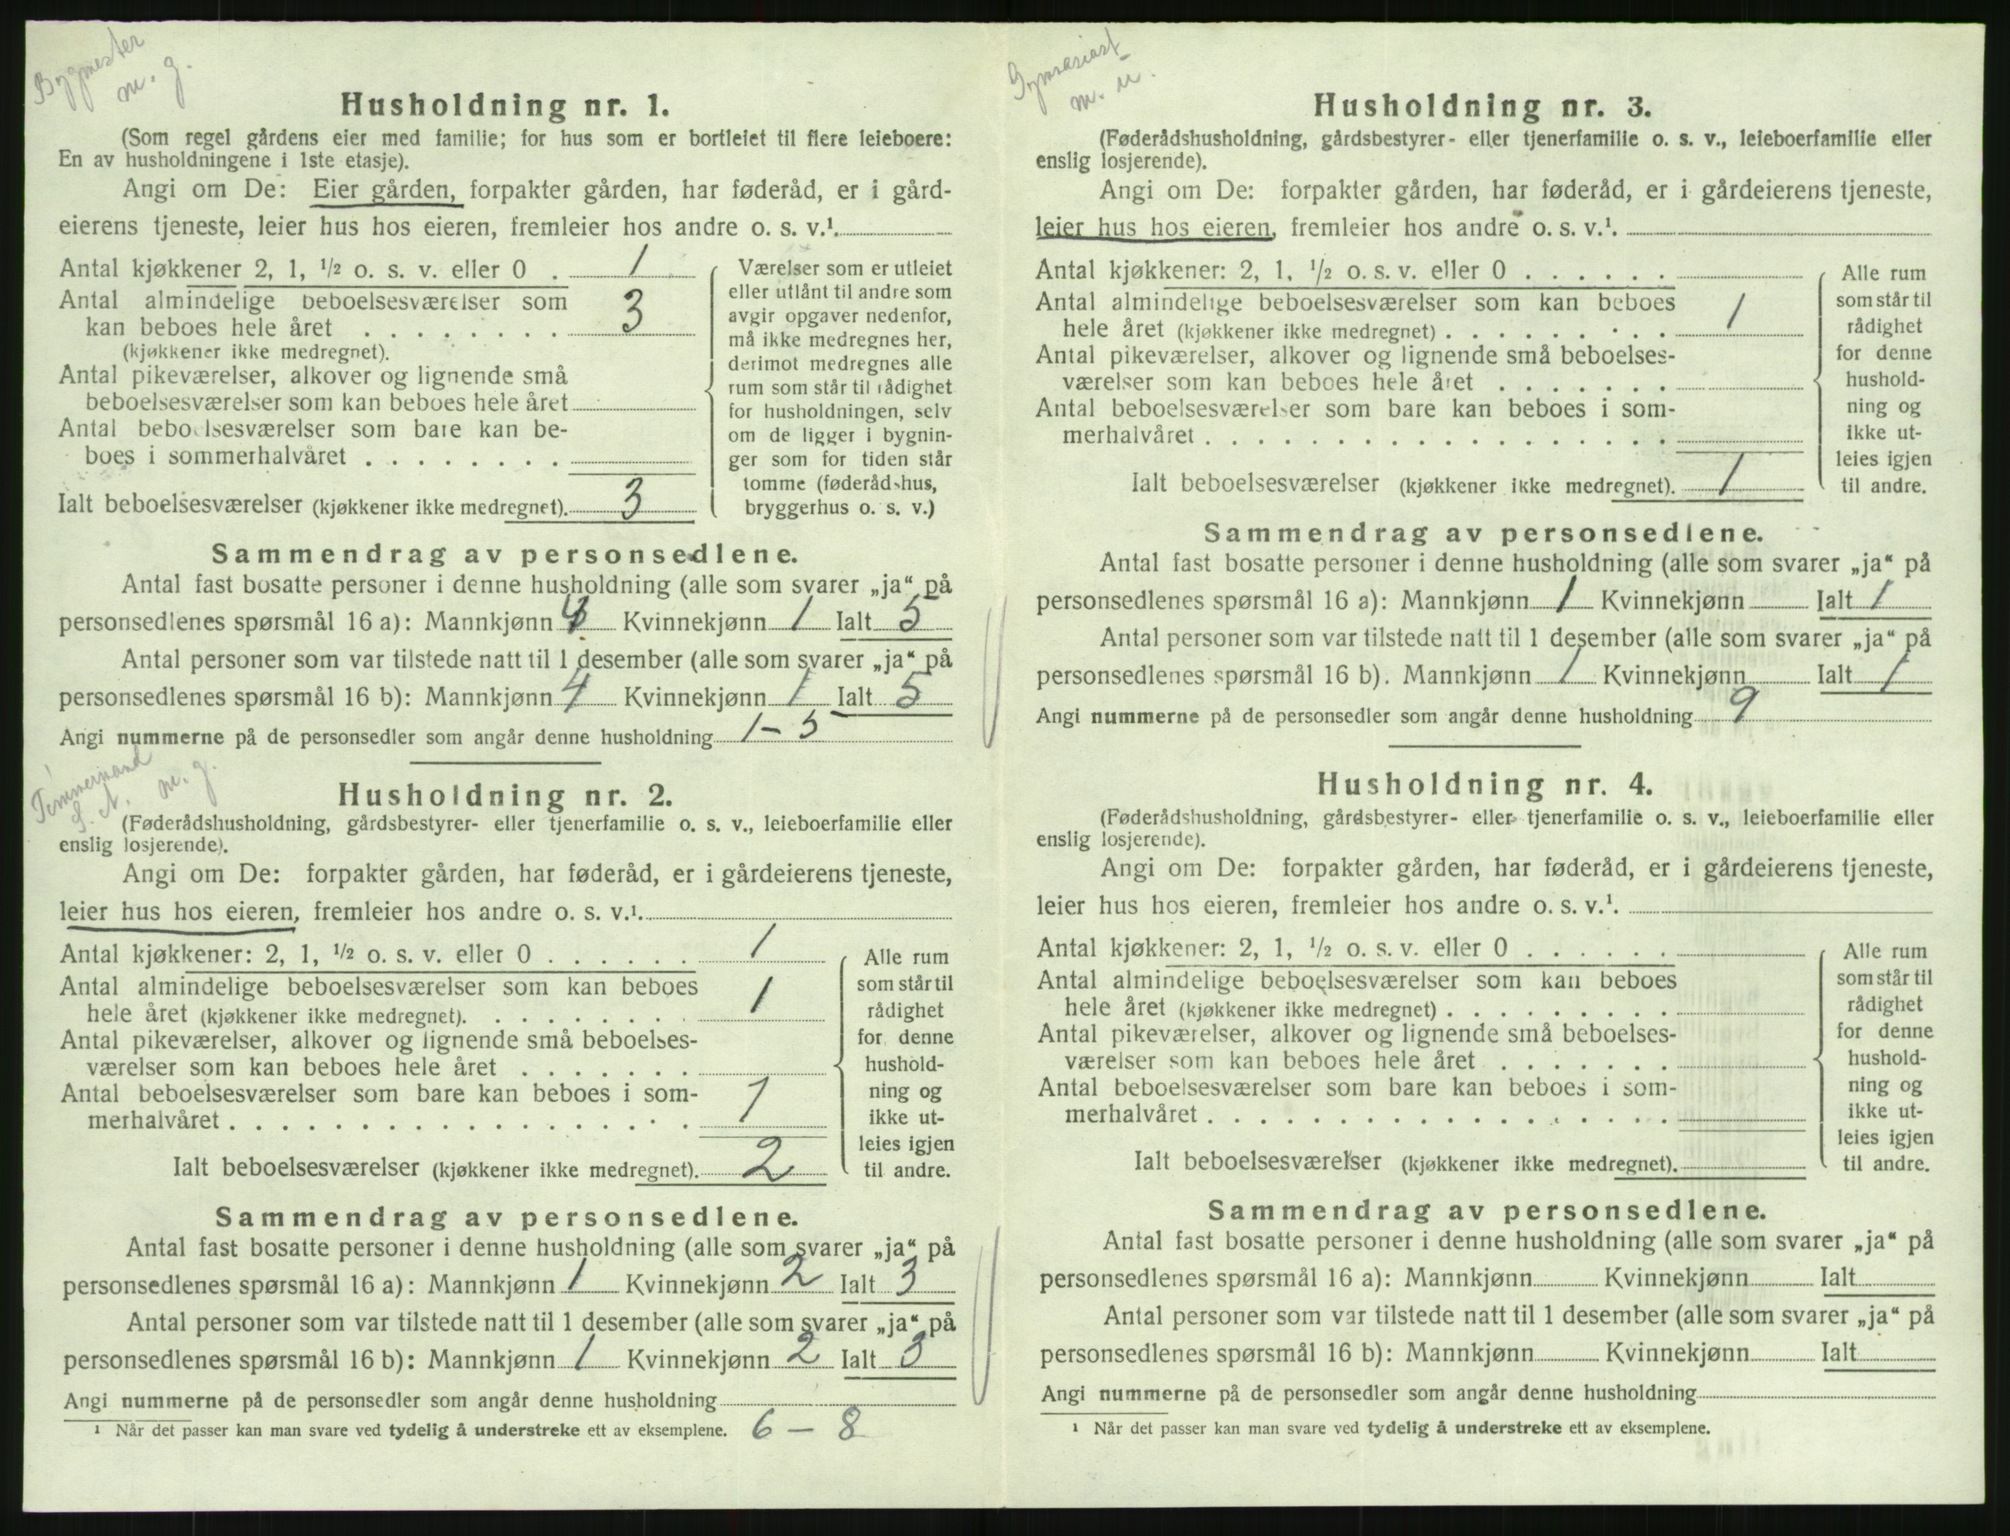 Bygmester
m. g.
Husholdning nr. 1.
(Som regel gårdens eier med familie; for hus som er bortleiet til flere leieboere:
En av husholdningene i 1ste etasje).
Angi om De: Eier gården, forpakter gården, har føderåd, er i gård-
eierens tjeneste, leier hus hos eieren, fremleier hos andre o. s. v.¹.
Antal kjøkkener 2, 1, ½ o. s. v. eller 0 . 1
Antal almindelige beboelsesværelser som
kan beboes hele året . . . . . . . . 3
(kjøkkener ikke medregnet).
Antal pikeværelser, alkover og lignende små
beboelsesværelser som kan beboes hele året
Antal beboelsesværelser som bare kan be-
boes i sommerhalvåret . . . . . . .
Ialt beboelsesværelser (kjøkkener ikke medregnet). 3
Værelser som er utleiet
eller utlånt til andre som
avgir opgaver nedenfor,
må ikke medregnes her,
derimot medregnes alle
rum som står til rådighet
for husholdningen, selv
om de ligger i bygnin-
ger som for tiden står
tomme (føderådshus,
bryggerhus o. s. v.)
Sammendrag av personsedlene.
Antal fast bosatte personer i denne husholdning (alle som svarer „ja“ på
personsedlenes spørsmål 16 a): Mannkjønn 4 Kvinnekjønn 1 Ialt 5
Antal personer som var tilstede natt til 1 desember (alle som svarer „ja“ på
personsedlenes spørsmål 16 b): Mannkjønn 4 Kvinnekjønn 1 Ialt 5
Angi nummerne på de personsedler som angår denne husholdning 1 - 5
Tømmermand
m. g.
Husholdning nr. 2.
(Føderådshusholdning, gårdsbestyrer- eller tjenerfamilie o. s. v., leieboerfamilie eller
enslig losjerende).
Angi om De: forpakter gården, har føderåd, er i gårdeierens tjeneste,
leier hus hos eieren, fremleier hos andre o. s. v.¹.
Antal kjøkkener: 2, 1, ½ o. s. v. eller 0 . . . . . . 1
Antal almindelige beboelsesværelser som kan beboes
hele året (kjøkkener ikke medregnet). . . . . . . . . 1
Antal pikeværelser, alkover og lignende små beboelses-
værelser som kan beboes hele året . . . . . . .
Antal beboelsesværelser som bare kan beboes i som-
merhalvåret . . . . . . . . . . . . . . . . . . 1
Ialt beboelsesværelser (kjøkkener ikke medregnet). 2
Alle rum
som står til
rådighet
for denne
hushold-
ning og
ikke ut-
leies igjen
til andre.
Sammendrag av personsedlene.
Antal fast bosatte personer i denne husholdning (alle som svarer „ja“ på
personsedlenes spørsmål 16 a): Mannkjønn 1 Kvinnekjønn 2 Ialt 3
Antal personer som var tilstede natt til 1 desember (alle som svarer „ja“ på
personsedlenes spørsmål 16 b): Mannkjønn 1 Kvinnekjønn 2 Ialt 3
Angi nummerne på de personsedler som angår denne husholdning
¹ Når det passer kan man svare ved tydelig å understreke ett av eksemplene. 6 - 8
Gymnasiast
m. u.
Husholdning nr. 3.
(Føderådshusholdning, gårdsbestyrer- eller tjenerfamilie o. s. v., leieboerfamilie eller
enslig losjerende).
Angi om De: forpakter gården, har føderåd, er i gårdeierens tjeneste,
leier hus hos eieren, fremleier hos andre o. s. v.¹.
Antal kjøkkener: 2, 1, ½ o. s. v. eller 0 . . . . . .
Antal almindelige beboelsesværelser som kan beboes
hele året (kjøkkener ikke medregnet) . . . . . . . . . 1
Antal pikeværelser, alkover og lignende små beboelses-
værelser som kan beboes hele året . . . . . . .
Antal beboelsesværelser som bare kan beboes i som-
merhalvåret . . . . . . . . . . . . . . . . . .
Ialt beboelsesværelser (kjøkkener ikke medregnet). 1
Alle rum
som står til
rådighet
for denne
hushold-
ning og
ikke ut-
leies igjen
til andre.
Sammendrag av personsedlene.
Antal fast bosatte personer i denne husholdning (alle som svarer „ja“ på
personsedlenes spørsmål 16 a): Mannkjønn 1 Kvinnekjønn Ialt 1
Antal personer som var tilstede natt til 1 desember (alle som svarer „ja“ på
personsedlenes spørsmål 16 b). Mannkjønn 1 Kvinnekjønn Ialt 1
Angi nummerne på de personsedler som angår denne husholdning 9
Husholdning nr. 4.
(Føderådshusholdning, gårdsbestyrer- eller tjenerfamilie o. s. v., leieboerfamilie eller
enslig losjerende).
Angi om De: forpakter gården, har føderåd, er i gårdeierens tjeneste,
leier hus hos eieren, fremleier hos andre o. s. v.¹.
Antal kjøkkener: 2, 1, ½ o. s. v. eller 0 . . . . . .
Antal almindelige beboelsesværelser som kan beboes
hele året (kjøkkener ikke medregnet) . . . . . . . . .
Antal pikeværelser, alkover og lignende små beboelses-
værelser som kan beboes hele året . . . . . . .
Antal beboelsesværelser som bare kan beboes i som-
merhalvåret . . . . . . . . . . . . . . . . . .
Ialt beboelsesværelser (kjøkkener ikke medregnet).
Alle rum
som står til
rådighet
for denne
hushold-
ning og
ikke ut-
leies igjen
til andre.
Sammendrag av personsedlene.
Antal fast bosatte personer i denne husholdning (alle som svarer „ja“ på
personsedlenes spørsmål 16 a): Mannkjønn Kvinnekjønn Ialt
Antal personer som var tilstede natt til 1 desember (alle som svarer „ja“ på
personsedlenes spørsmål 16 b): Mannkjønn Kvinnekjønn Ialt
Angi nummerne på de personsedler som angår denne husholdning
¹ Når det passer kan man svare ved tydelig å understreke ett av eksemplene.